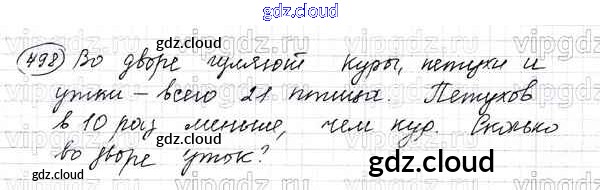 gdz.cloud
498 Во дворе гуляют куры, петухи и
gdz.cloud
утки – всего 21 птица. Петухов
gdz.cloud
в 10 раз меньше, чем кур. Сколько
во дворе уток?
gdz.cloud
gdz.cloud